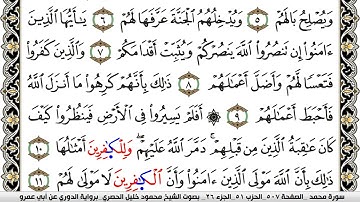 وَيُصْلِحُ بَالَهُمْ ٥ وَيُدْخِلُهُمُ الْجَنَّةَ عَرَّفَهَا لَهُمْ ٦ يَٰٓأَيُّهَا الَّذِينَ
ءَامَنُوٓا۟ إِن تَنصُرُوا۟ اللَّهَ يَنصُرْكُمْ وَيُثَبِّتْ أَقْدَامَكُمْ ٧ وَالَّذِينَ كَفَرُوا۟
فَتَعْسًا لَهُمْ وَأَضَلَّ أَعْمَٰلَهُمْ ٨ ذَٰلِكَ بِأَنَّهُمْ كَرِهُوا۟ مَا أَنزَلَ اللَّهُ
فَأَحْبَطَ أَعْمَٰلَهُمْ ٩ أَفَلَمْ يَسِيرُوا۟ فِي الْأَرْضِ فَيَنظُرُوا۟ كَيْفَ
كَانَ عَٰقِبَةُ الَّذِينَ مِن قَبْلِهِمْ دَمَّرَ اللَّهُ عَلَيْهِمْ وَلِلْكَٰفِرِينَ أَمْثَٰلُهَا ١٠
ذَٰلِكَ بِأَنَّ اللَّهَ مَوْلَى الَّذِينَ ءَامَنُوا۟ وَأَنَّ الْكَٰفِرِينَ لَا مَوْلَىٰ لَهُمْ ١١
سورة محمد _ الصفحة ٥٠٧ _ الحزب ٥١ _ الجزء ٢٦ _ بصوت الشيخ محمود خليل الحصري _ برواية الدوري عن أبي عمرو